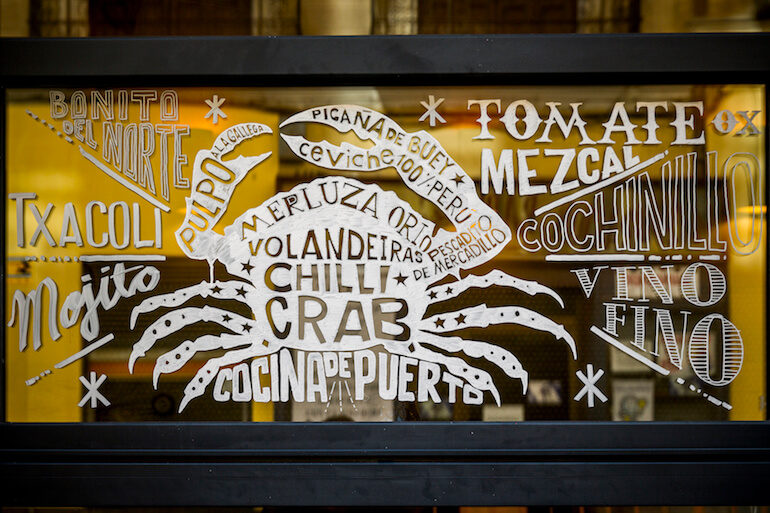 BONITO
DEL NORTE
TXACOLI
Mojito
PULPO
A LA GALLEGA
PICANA DE BUEY
CEVICHE 100% PERU
MERLUZA ORIO
VOLANDEIRAS
PESCADITO
DE MERCADILLO
CHILLI
CRAB
COCINA DE PUERTO
TOMATE OX
MEZCAL
COCHINILLO
VINO
FINO